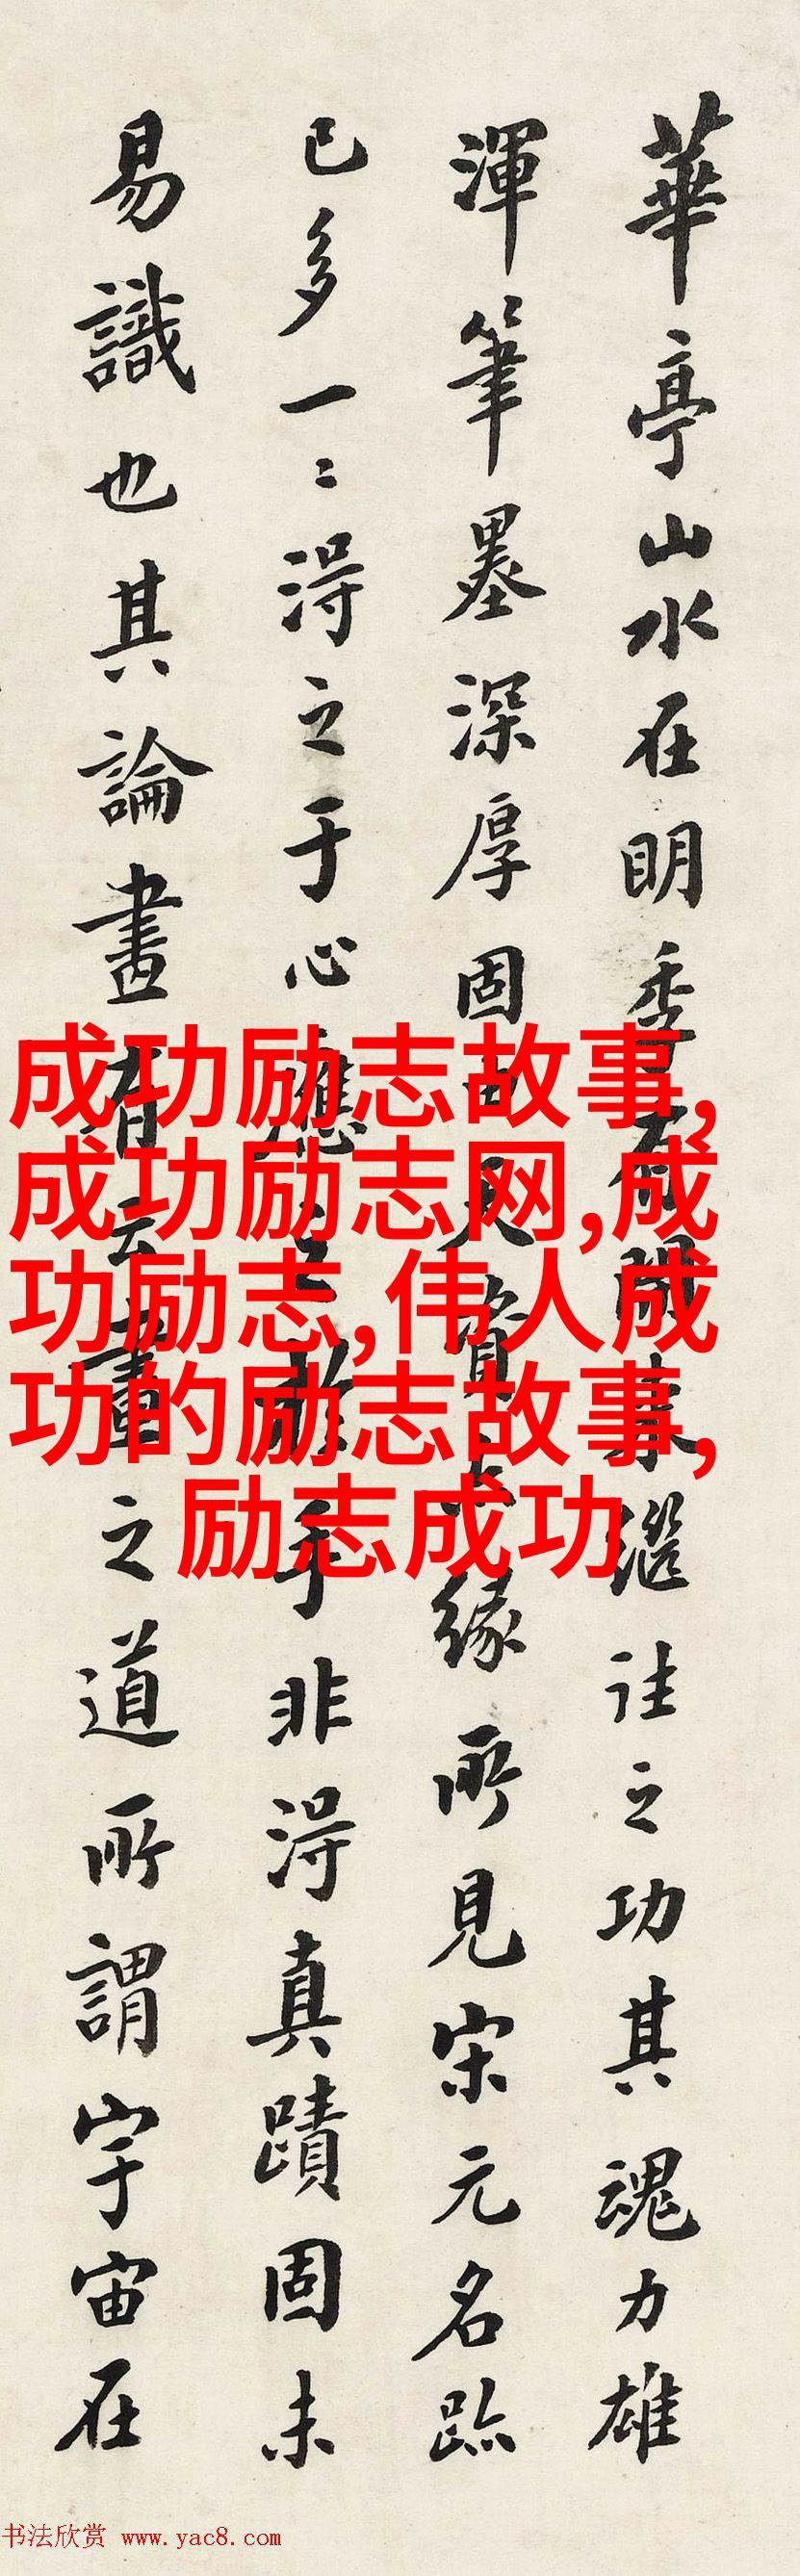 華亭山水在明季有開來繼往之功其魂力雄
渾筆墨深厚固由天資亦緣所見宋元名跡
已多一二得之于心應之於手非得真蹟固未
易識也其論畫有云畫之道所謂宇宙在
成功励志故事,
成功励志网,成
功励志,伟人成
功的励志故事,
励志成功
书法欣赏 www.yac8.com